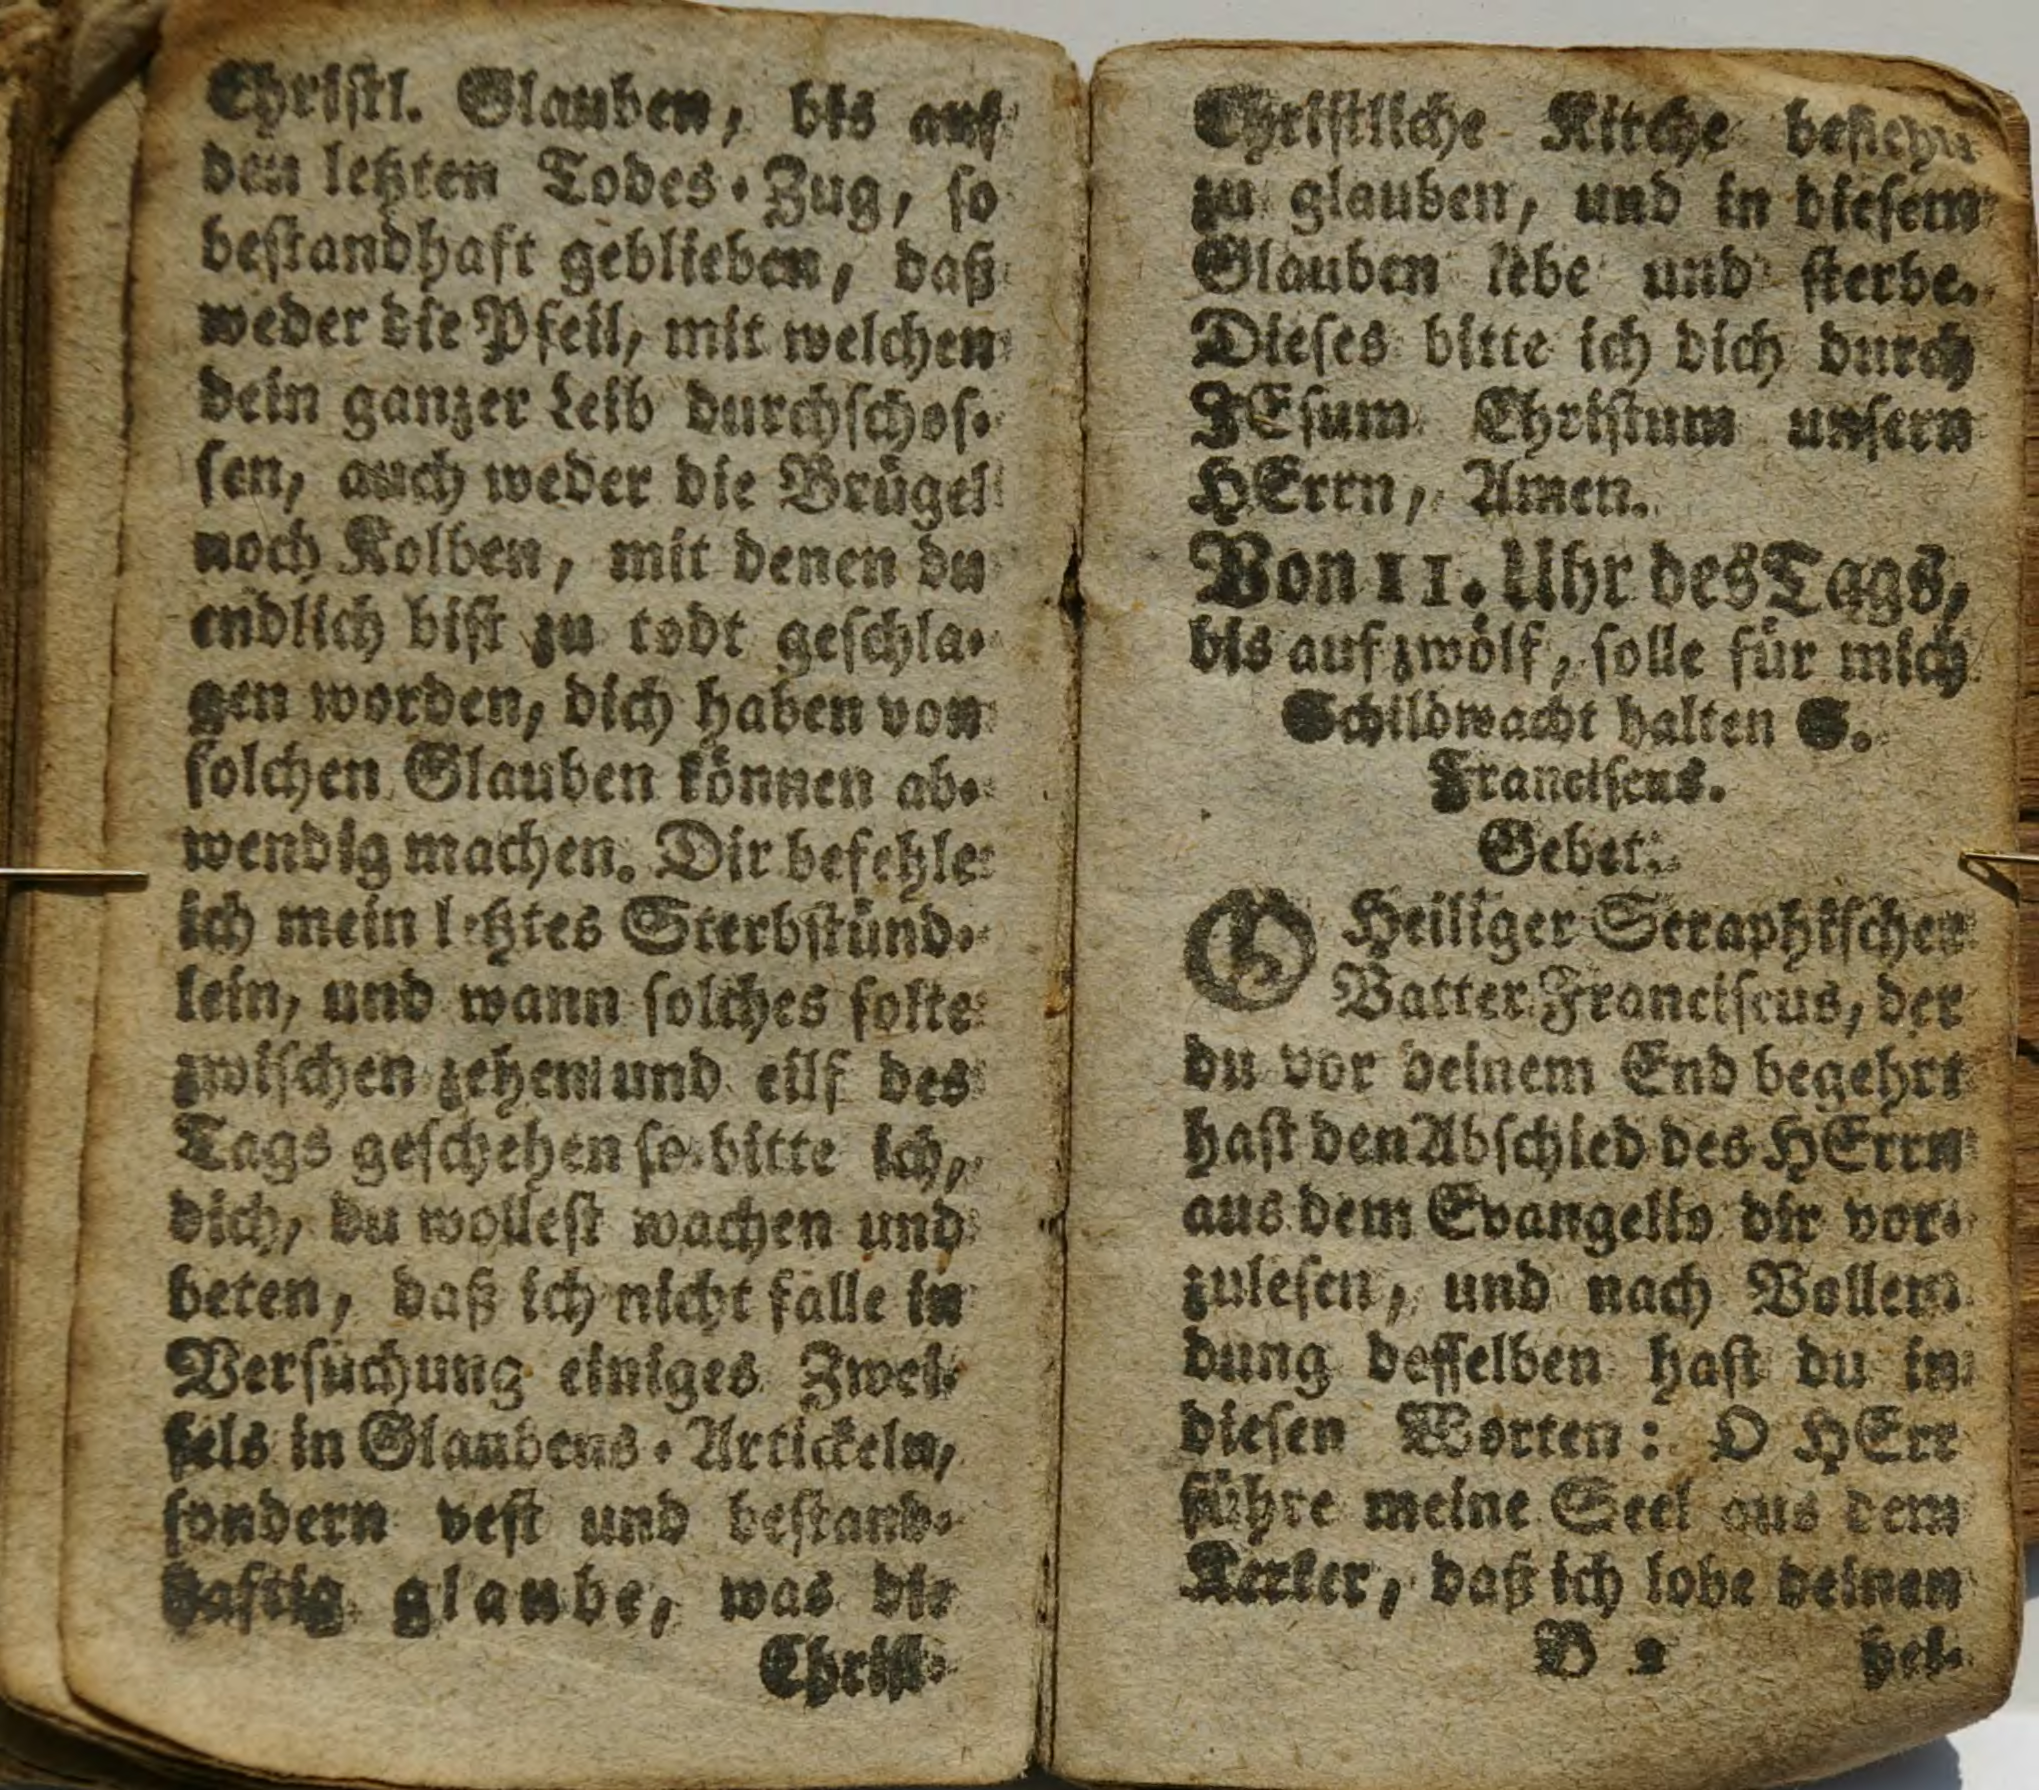 Christl. Glauben, bis auf
den letzten Todes-Zug, so
bestandhaft geblieben, daß
weder die Pfeil, mit welchen
dein ganzer Leib durchschos-
sen, auch weder die Brügel
noch Kolben, mit denen du
endlich bist zu todt geschla-
gen worden, dich haben von
solchen Glauben können ab-
wendig machen. Dir befehle
ich mein letztes Sterbstünd-
lein, und wann solches solte
zwischen zehen und eilf des
Tags geschehen so bitte ich,
dich, du wollest wachen und
beten, daß ich nicht falle in
Versuchung einiges Zwei-
fels in Glaubens-Artickeln,
sondern vest und bestand-
haftig glaube, was die
Christ-
Christliche Kirche befiehlt
zu glauben, und in diesem
Glauben lebe und sterbe.
Dieses bitte ich dich durch
JEsum Christum unsern
HErrn, Amen.
Von 11. Uhr des Tags,
bis auf zwölf, solle für mich
Schildwacht halten S.
Franciscus.
Gebet.
O Heiliger Seraphischer
Vatter Franciscus, der
du vor deinem End begehrt
hast den Abschied des HErrn
aus dem Evangelio dir vor-
zulesen, und nach Vollen-
dung desselben hast du in
diesen Worten: O HErr
führe meine Seel aus dem
Kerker, daß ich lobe deinen
B 2 hei-